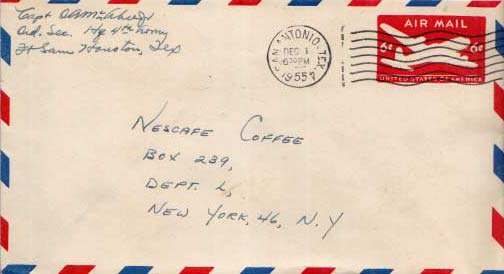 Capt
Ord. Sec. Hq 4th Army
Ft Sam Houston, Tex
SAN ANTONIO, TEX.
DEC 1
630 PM
1955
AIR MAIL
6¢ 6¢
UNITED STATES OF AMERICA
NESCAFE COFFEE
BOX 239,
DEPT. L,
NEW YORK, 46, N.Y